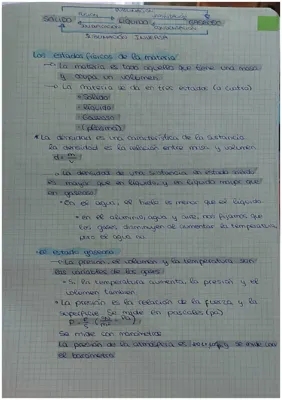 SÓLIDO LÍQUIDO
SUBLIMACIÓN INVERSA
Los estados físicos de la materia
La materia es todo aquello que tiene una masa
y ocupa un volumen.
La materia se da en tres estados (o cuatro)
Sólido
Líquido
Gaseoso
(plasma)
La densidad es una característica de la sustancia
la densidad es la relación entre masa y volumen
d = m/v
La densidad de una sustancia de estado sólido
es mayor que en líquido, y en líquido mayor que
en gaseoso
En el agua, el hielo es menos que el líquido
en el aluminio, agua y aire, nos fijamos que
los gases disminuyen al aumentar la temperatura
pero el agua no
El estado gaseoso
La presión, el volumen y la temperatura son
las variables de los gases
Si la temperatura aumenta, la presión y el
volumen también
La presión es la relación de la fuerza y la
superficie. Se mide en pascales (pa)
Se mide con manómetros
La presión de la atmósfera es y se mide con
el barómetro